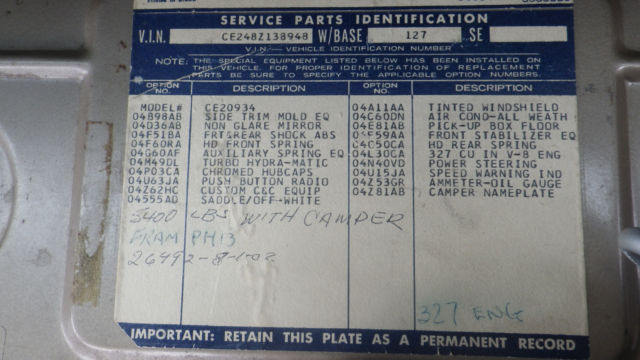 SERVICE PARTS IDENTIFICATION
V.I.N. CE248Z138948 W/BASE 127 SE
V.I.N.—VEHICLE IDENTIFICATION NUMBER
NOTE: THE SPECIAL EQUIPMENT LISTED BELOW HAS BEEN INSTALLED ON
THIS VEHICLE. FOR PROPER IDENTIFICATION OF REPLACEMENT
PARTS BE SURE TO SPECIFY THE APPLICABLE OPTION NUMBERS.
OPTION NO. DESCRIPTION OPTION NO. DESCRIPTION
MODEL# CE20934 04A11AA TINTED WINDSHIELD
04B98AB SIDE TRIM MOLD EQ 04C60DN AIR COND-ALL WEATH
04D36AB NON GLARE MIRROR 04E81AB PICK-UP BOX FLOOR
04F51BA FRTGREAR SHOCK ABS 04F59AA FRONT STABILIZER EQ
04F60RA HD FRONT SPRING 04G50CA HD REAR SPRING
04G60AF AUXILIARY SPRING EQ 04L30CA 327 CU IN V-8 ENG
04M49DL TURBO HYDRA-MATIC 04N40YD POWER STEERING
04P03CA CHROMED HUBCAPS 04U15JA SPEED WARNING IND
04U63JA PUSH BUTTON RADIO 04Z53GR AMMETER-OIL GAUGE
04Z62HC CUSTOM C&C EQUIP 04Z81AB CAMPER NAMEPLATE
04555AD SADDLE/OFF-WHITE
5400 LBS WITH CAMPER
FRAM PH13
26492-8-1-02
327 ENG
IMPORTANT: RETAIN THIS PLATE AS A PERMANENT RECORD